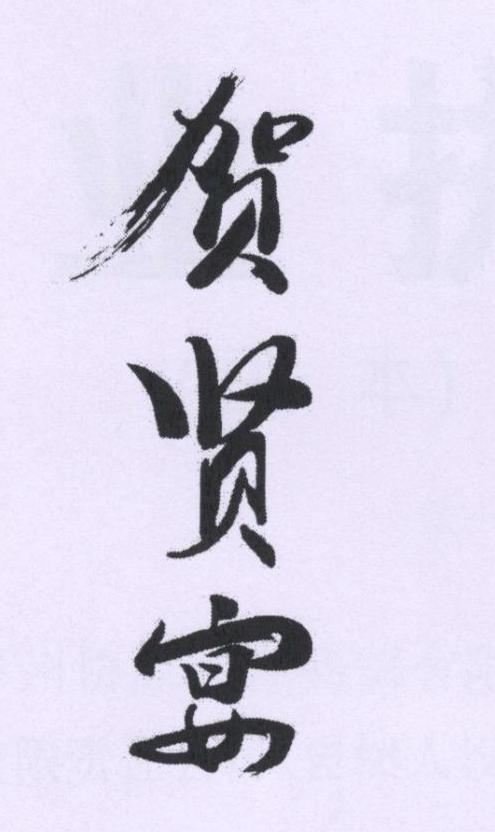 贺贤宴